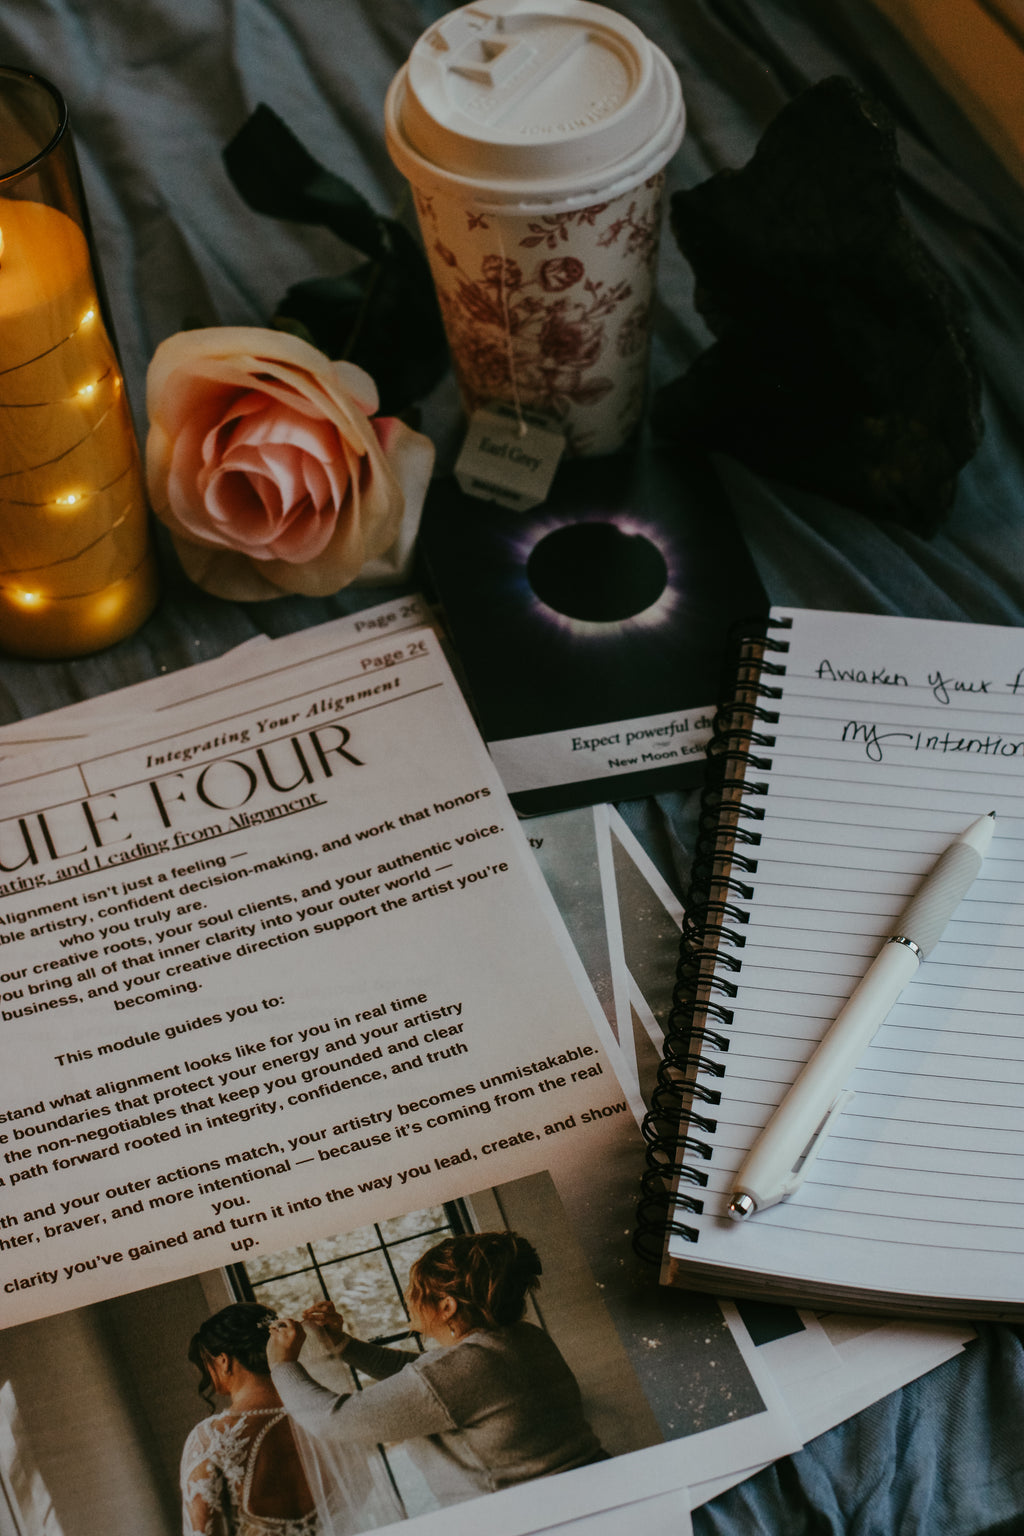 Earl Grey
Page 2
Page 26
Integrating Your Alignment
ULE FOUR
ating, and Leading from Alignment
Alignment isn't just a feeling —
ble artistry, confident decision-making, and work that honors
who you truly are.
our creative roots, your soul clients, and your authentic voice.
you bring all of that inner clarity into your outer world —
business, and your creative direction support the artist you're
becoming.
This module guides you to:
stand what alignment looks like for you in real time
e boundaries that protect your energy and your artistry
the non-negotiables that keep you grounded and clear
a path forward rooted in integrity, confidence, and truth
th and your outer actions match, your artistry becomes unmistakable.
hter, braver, and more intentional — because it's coming from the real
you.
clarity you've gained and turn it into the way you lead, create, and show
up.
Expect powerful ch
New Moon Eclip
ty
Awaken your
My intention